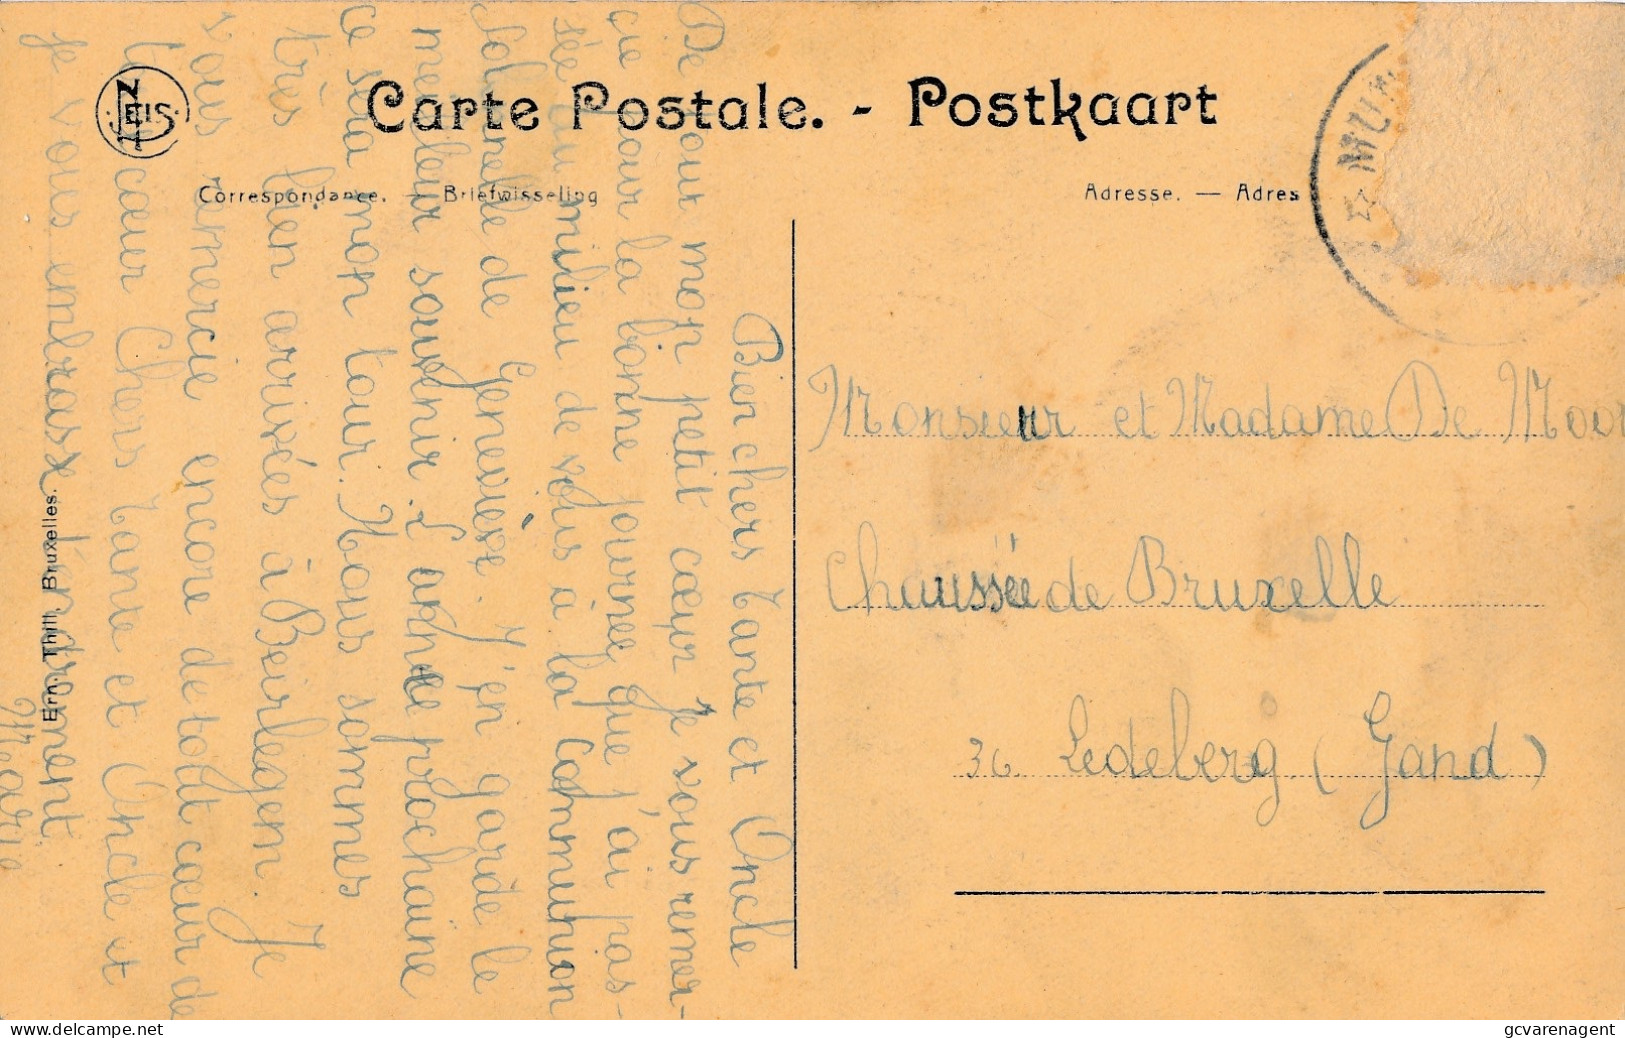 Carte Postale. - Postkaart
NELS
Correspondance. — Briefwisseling
Adresse. — Adres
MUN
Bien chers Tante et Oncle
De tout mon petit cœur je vous remer-
cie pour la bonne journée que j'ai pas-
sée au milieu de vous à la Communion
Solennelle de Geneviève. J'en garde le
meilleur souvenir. L'année prochaine
ce sera mon tour. Nous sommes
très bien arrivées à Beirlegem. Je
vous remercie encore de tout cœur de
tout cœur Chers Tante et Oncle et
je vous embrasse tendrement.
Marie
Ern. Thill, Bruxelles.
Monsieur et Madame De Moor
Chaussée de Bruxelle
36 Ledeberg (Gand)
gcvarenagent
https://www.delcampe.net